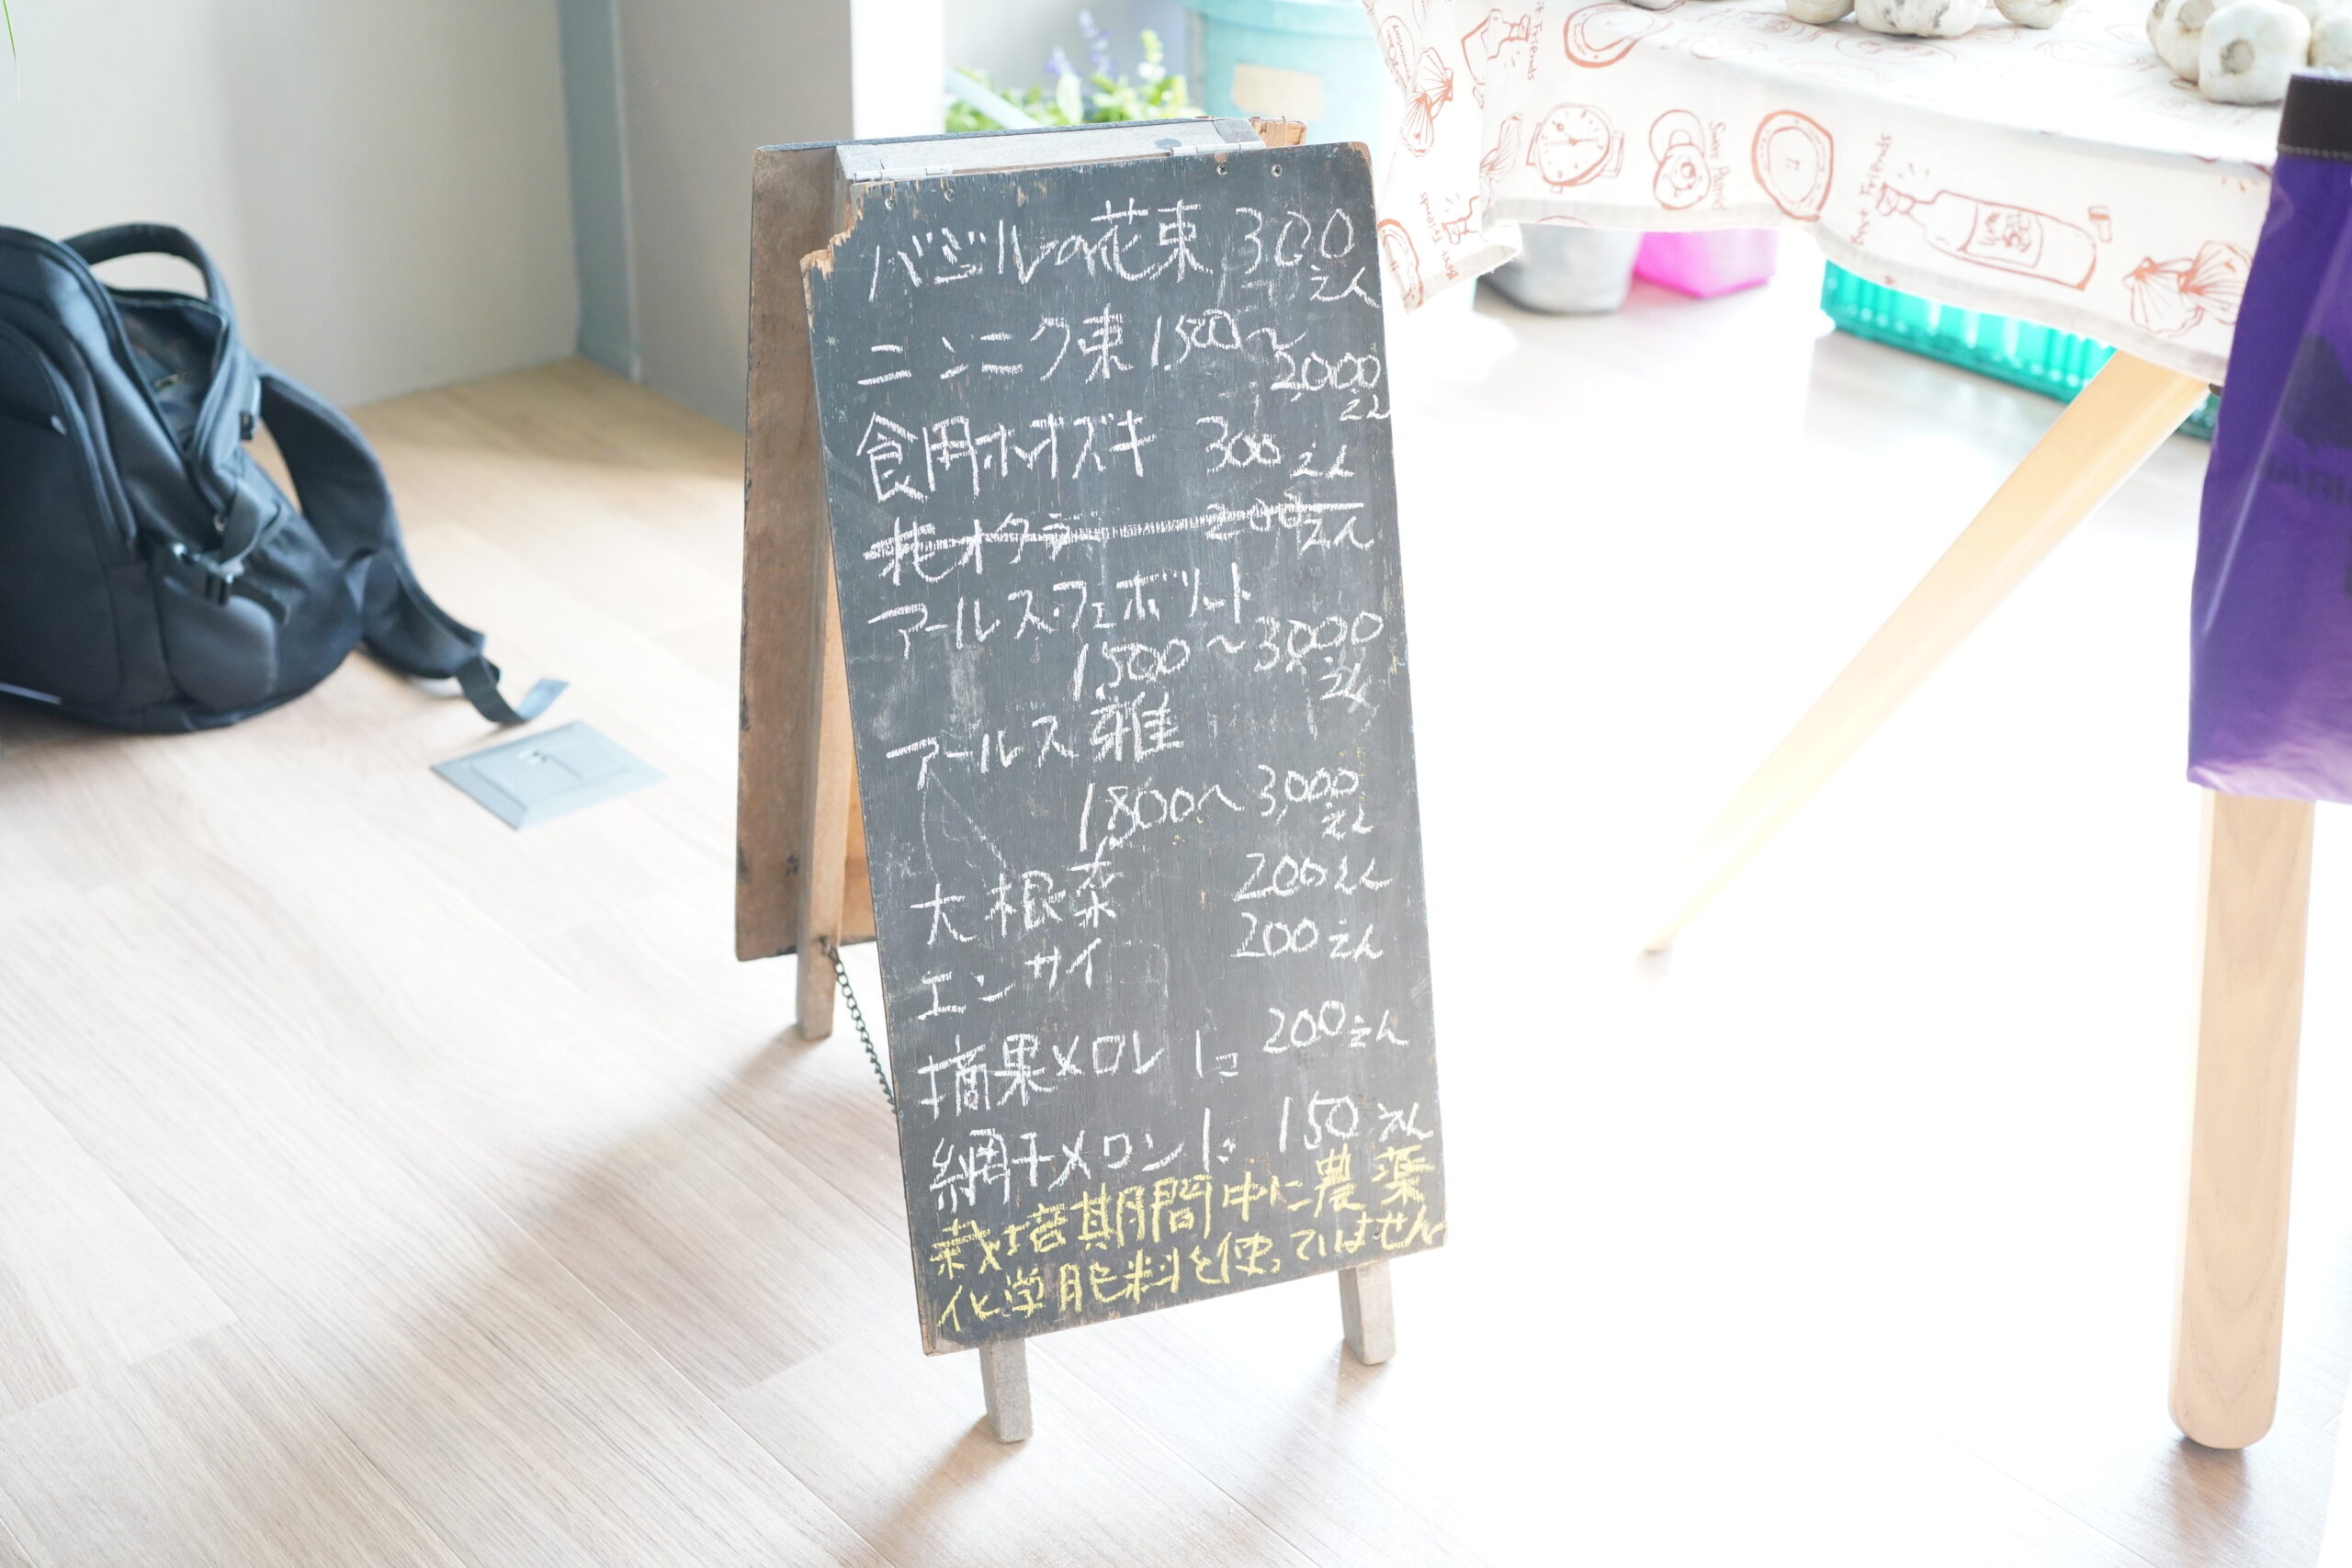 バジルの花束 300
えん
ニンニク束 1,500〜
2,000
えん
食用ホオズキ 300えん
花オクラ 200えん
アールス・フェボリット
1,500〜3,000
えん
アールス雅
1,800〜3,000
えん
大根菜 200えん
エンサイ 200えん
摘果メロン 1コ 200えん
網干メロン 1コ 150えん
栽培期間中に農薬
化学肥料を使っていません
Best Friends
Best Friends